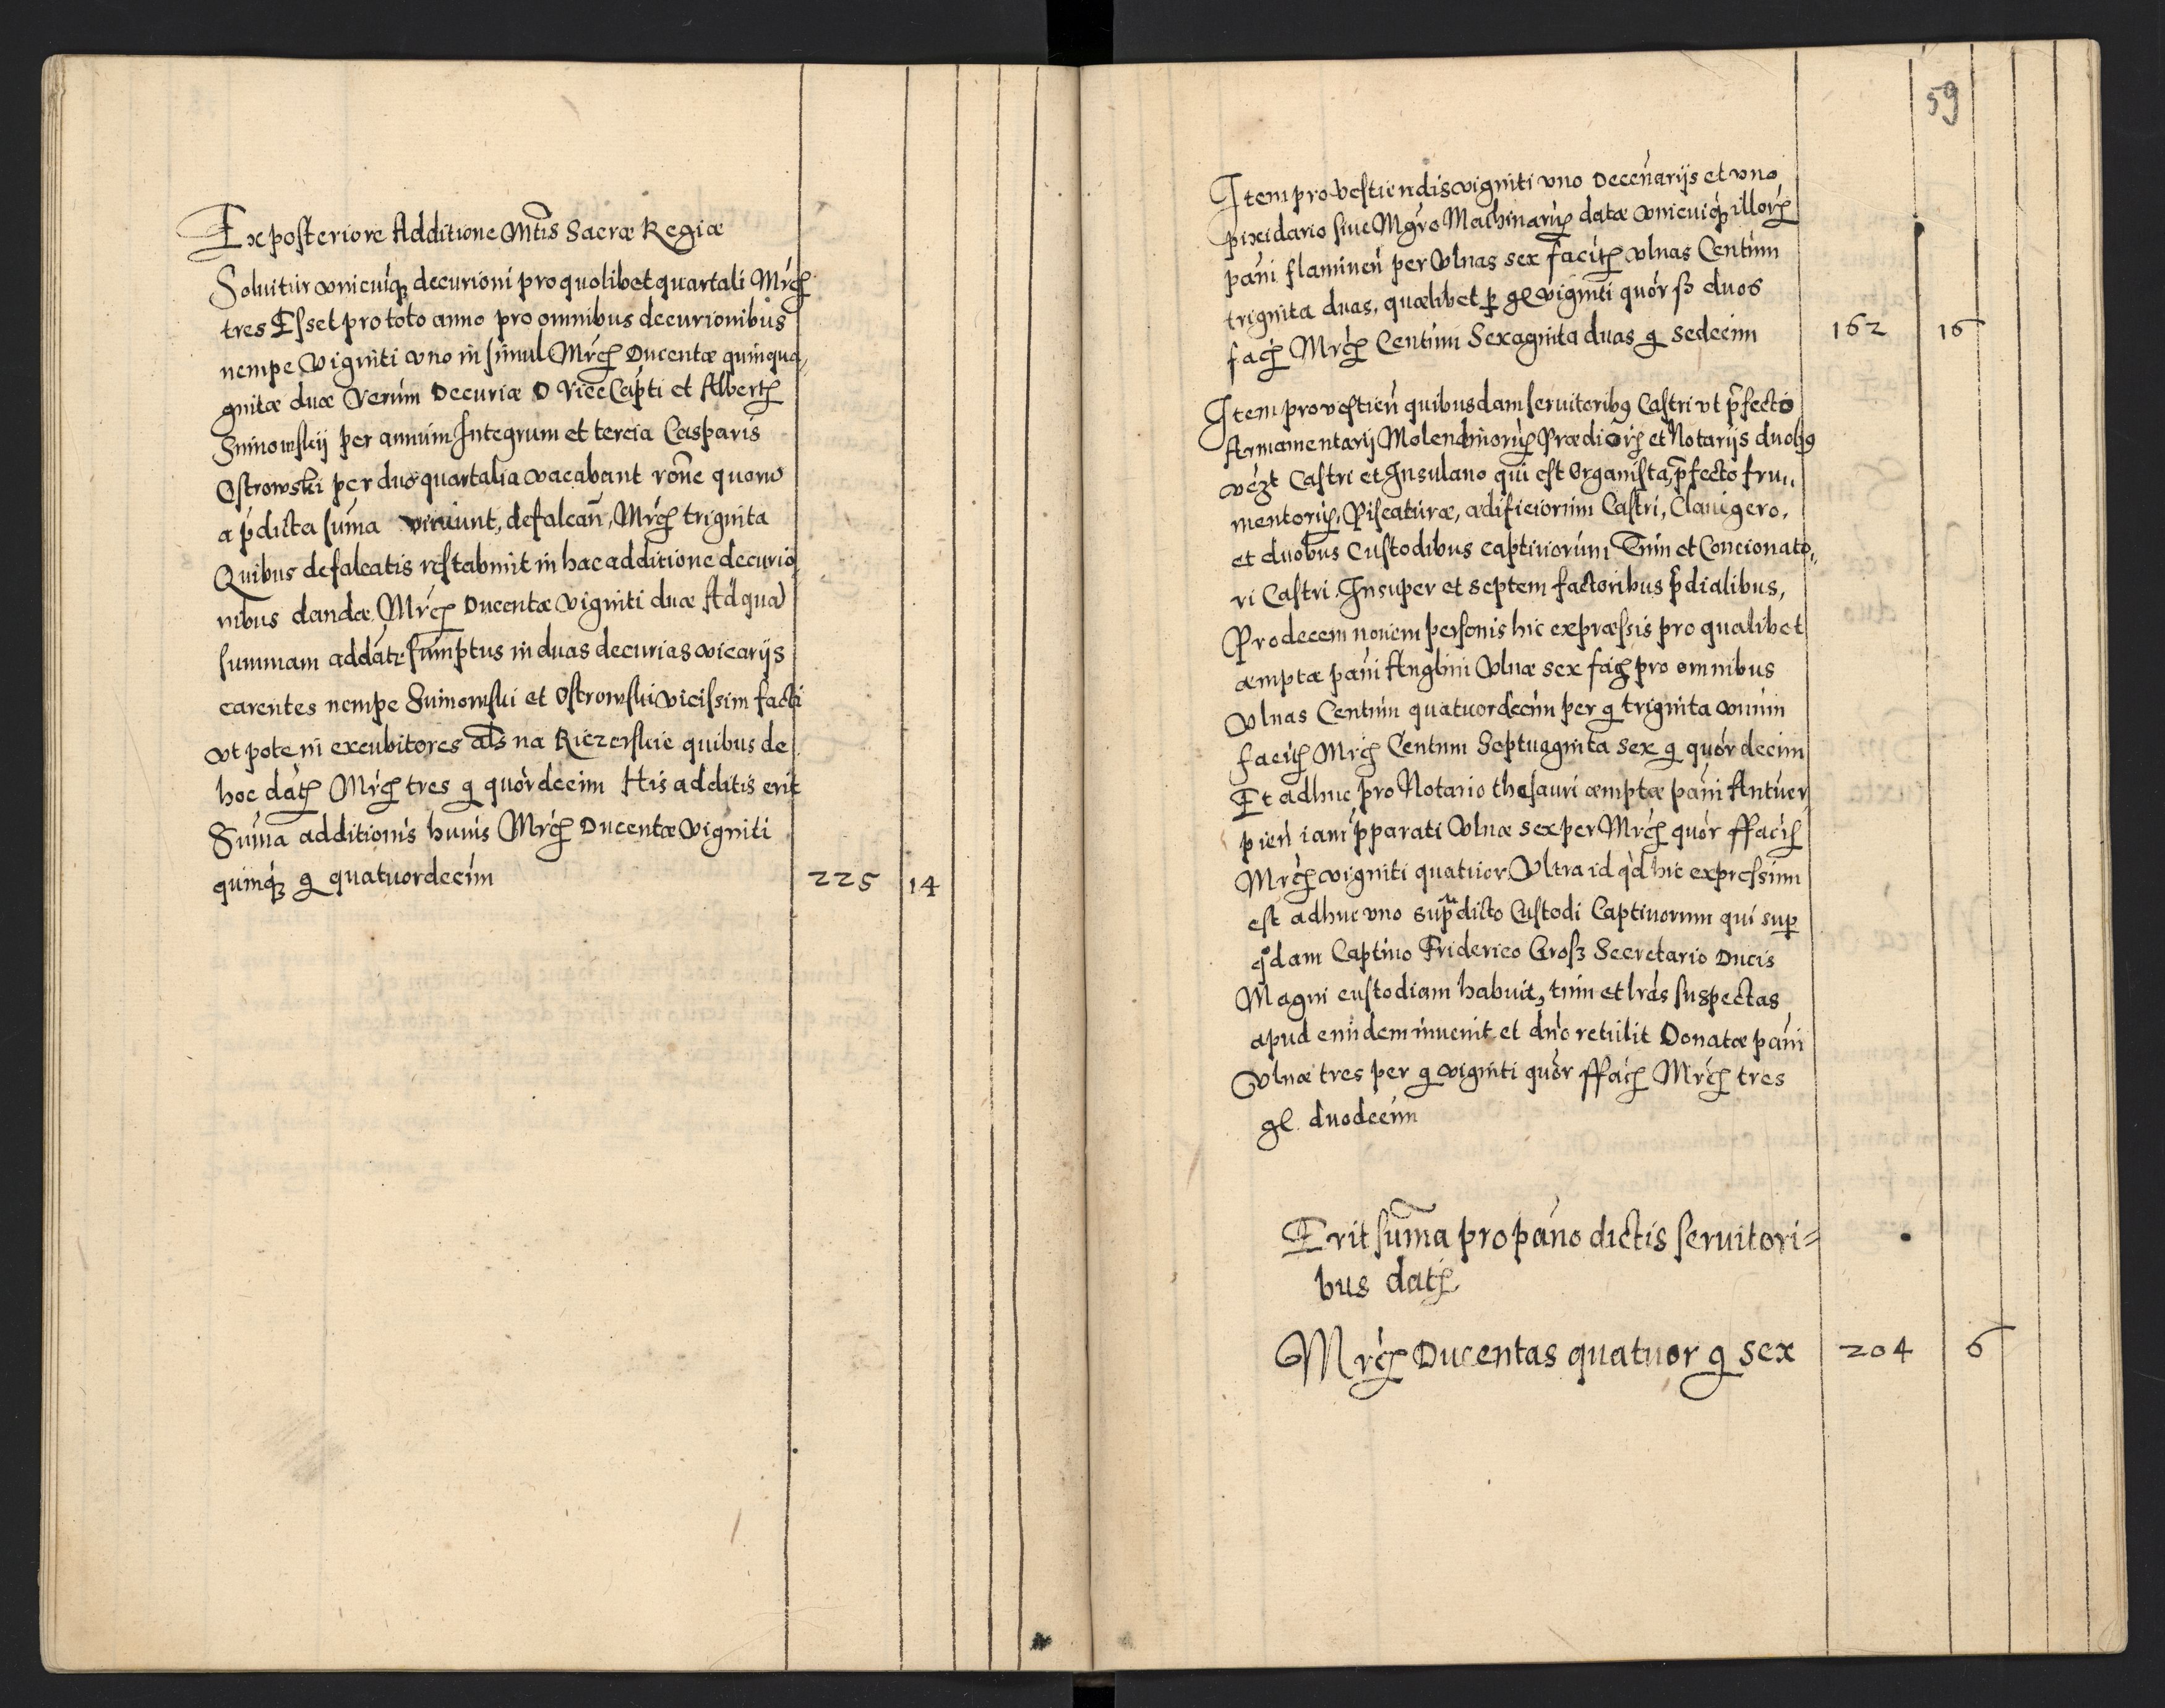 Ex posteriore Additione Mtis Sacræ Regiæ
Soluitur vnicuiq; decurioni pro quolibet quartali Mrcę
tres Esset pro toto anno pro omnibus decurionibus
nempe vigniti vno in simul Mrcę Ducentæ quinqua,
gnitæ duæ Verum Decuriæ D Vice Capti et Albertę
Suinowskij per annum Integrum et tercia Casparis
Ostrowski per duo quartalia vacabant rone quoru
a pdicta suma veniunt, defalcan, Mrcę trignita
Quibus defalcatis restabunt in hac additione decurio,
nibus dandæ Mrcę Ducentæ vigniti duæ Ad qua
summam addatr sumptus in duas decurias vicarijs
carentes nempe Suinowski et Ostrowski vicissim facti
vt pote in excubitores als na Kiczerskie quibus de
hoc datę Mrcę tres g quordecim His additis erit
Suma additionis huius Mrcę Ducentæ vigniti
quinq; g quatuordecim 225 14
59
Item pro vestiendis vigniti vno Decenarijs et vno
pixidario siue Mgro Machinarų datæ vnicuiq; illorų
pani flaminen per vlnas sex facitę vlnas Centum
trignita duas, quælibet p gl vigniti quor ß duos
facę Mrcę Centum Sexagnita duas g sedecim 162 16
Item pro vestien quibusdam seruitoribq Castri vt pfecto
Armamentarij Molendinorų Prædiorų et Notarijs duobq
vezt Castri et Insulano qui est Organista, pfecto fru,,
mentorų, Piscaturæ, ædificiorum Castri, Clauigero,
et duobus Custodibus captiuorum Tum et Concionato,,
ri Castri. Insuper et septem factoribus pdialibus,
Pro decem nouem personis hic expræssis pro qualibet
æmptæ pani Anglini Vlnæ sex facę pro omnibus
Vlnas Centum quatuordecim per g trignita vnum
facitę Mrcę Centum Septuagnita sex g quordecim
Et adhuc pro Notario thesauri æmptæ pani Antuer,
pien iam pparati Vlnæ sex per Mrcę quor ffacię
Mrcę vigniti quatuor Vltra id qd hic expressum
est adhuc vno supradicto Custodi Captiuorum qui sup
qdam Captiuo Friderico Groß Secretario Ducis
Magni custodiam habuit, tum et lras suspectas
apud eundem inuenit et dno retulit Donatæ pani
Vlnæ tres per g vigniti quor ffacę Mrcę tres
gl. duodecim
Erit suma pro pano dictis seruitori=
bus datę
Mrcę Ducentas quatuor g sex 204 6